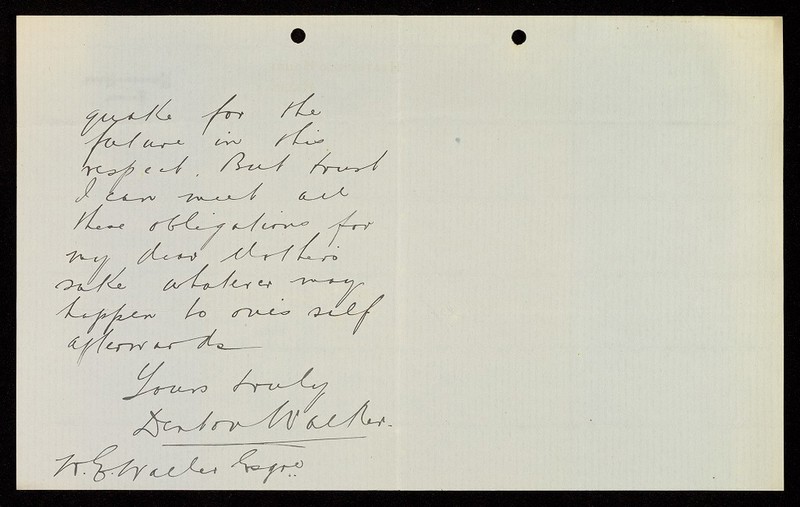 quake for the
future in this
respect. But trust
I can meet all
these obligations for
my dear Mother's
sake whatever may
happen to one's self
afterwards
Yours truly
Denton Walker.
W. E. Waller Esqre.